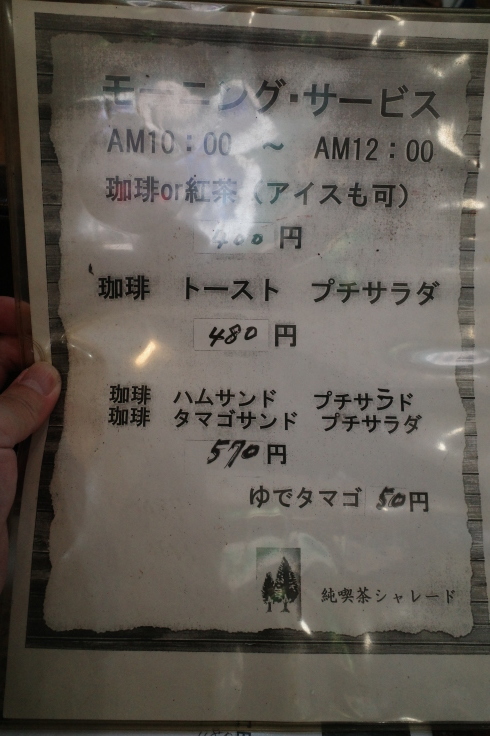 モーニング・サービス
AM10：00　～　AM12：00
珈琲or紅茶（アイスも可）
400 円
珈琲　トースト　プチサラダ
480 円
珈琲　ハムサンド　プチサラド
珈琲　タマゴサンド　プチサラダ
570 円
ゆでタマゴ 50 円
純喫茶シャレード